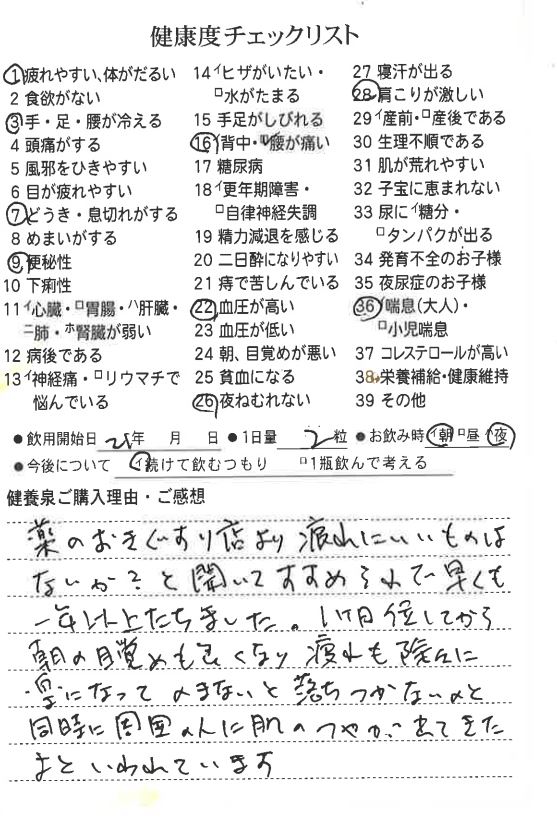 健康度チェックリスト
1 疲れやすい、体がだるい
2 食欲がない
3 手・足・腰が冷える
4 頭痛がする
5 風邪をひきやすい
6 目が疲れやすい
7 どうき・息切れがする
8 めまいがする
9 便秘性
10 下痢性
11 イ心臓・ロ胃腸・ハ肝臓・
ニ肺・ホ腎臓が弱い
12 病後である
13 イ神経痛・ロリウマチで
悩んでいる
14 イヒザがいたい・
ロ水がたまる
15 手足がしびれる
16 イ背中・ロ腰が痛い
17 糖尿病
18 イ更年期障害・
ロ自律神経失調
19 精力減退を感じる
20 二日酔になりやすい
21 痔で苦しんでいる
22 血圧が高い
23 血圧が低い
24 朝、目覚めが悪い
25 貧血になる
26 夜ねむれない
27 寝汗が出る
28 肩こりが激しい
29 イ産前・ロ産後である
30 生理不順である
31 肌が荒れやすい
32 子宝に恵まれない
33 尿にイ糖分・
ロタンパクが出る
34 発育不全のお子様
35 夜尿症のお子様
36 イ喘息(大人)・
ロ小児喘息
37 コレステロールが高い
38 栄養補給・健康維持
39 その他
●飲用開始日 21年 月 日 ●1日量 2粒 ●お飲み時 イ朝 ロ昼 ハ夜
●今後について イ続けて飲むつもり ロ1瓶飲んで考える
健養泉ご購入理由・ご感想
薬のおきぐすり店より疲れにいいものは
ないか?と聞いてすすめられて早くも
一年以上たちました。1ヶ月位してから
朝の目覚めも良くなり疲れも除々に
楽になって のまないと落ちつかないのと
同時に周囲の人に肌のつやが出てきた
よといわれています